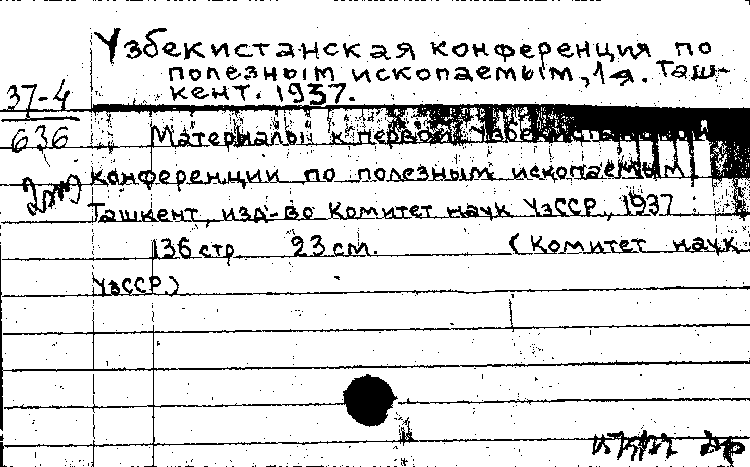 Узбекистанская конференция по
полезным ископаемым, 1-я. Таш-
кент. 1937.
37-4
636
Материалы к первой Узбекистанской
конференции по полезным ископаемым
Ташкент, изд-во Комитет наук УзССР, 1937
136 стр. 23 см. (Комитет наук
УзССР)